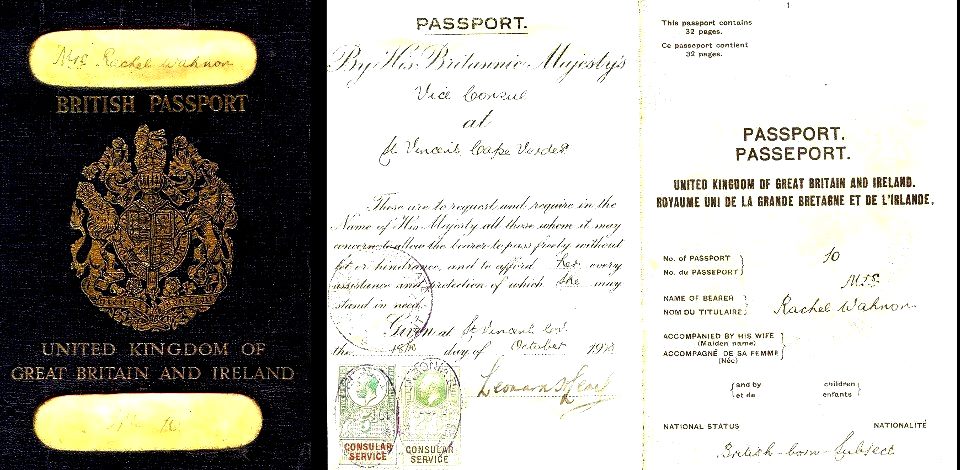 Mrs Rachel Wahnon
BRITISH PASSPORT
UNITED KINGDOM OF
GREAT BRITAIN AND IRELAND
PASSPORT.
By His Britannic Majesty's
Vice Consul
at
St Vincent, Cape Verdes
These are to request and require in the
Name of His Majesty all those whom it may
concern to allow the bearer to pass freely without
let or hindrance, and to afford her every
assistance and protection of which she may
stand in need.
Given at St Vincent
the 18th day of October
CONSULAR
SERVICE
CONSULAR
SERVICE
1
This passport contains
32 pages.
Ce passeport contient
32 pages.
PASSPORT.
PASSEPORT.
UNITED KINGDOM OF GREAT BRITAIN AND IRELAND.
ROYAUME UNI DE LA GRANDE BRETAGNE ET DE L'IRLANDE.
No. of PASSPORT
No. du PASSEPORT
10
Mrs
NAME OF BEARER
NOM DU TITULAIRE
Rachel Wahnon
ACCOMPANIED BY HIS WIFE
(Maiden name)
ACCOMPAGNÉ DE SA FEMME
(Née)
and by children
et de enfants
NATIONAL STATUS NATIONALITÉ
British-born-Subject